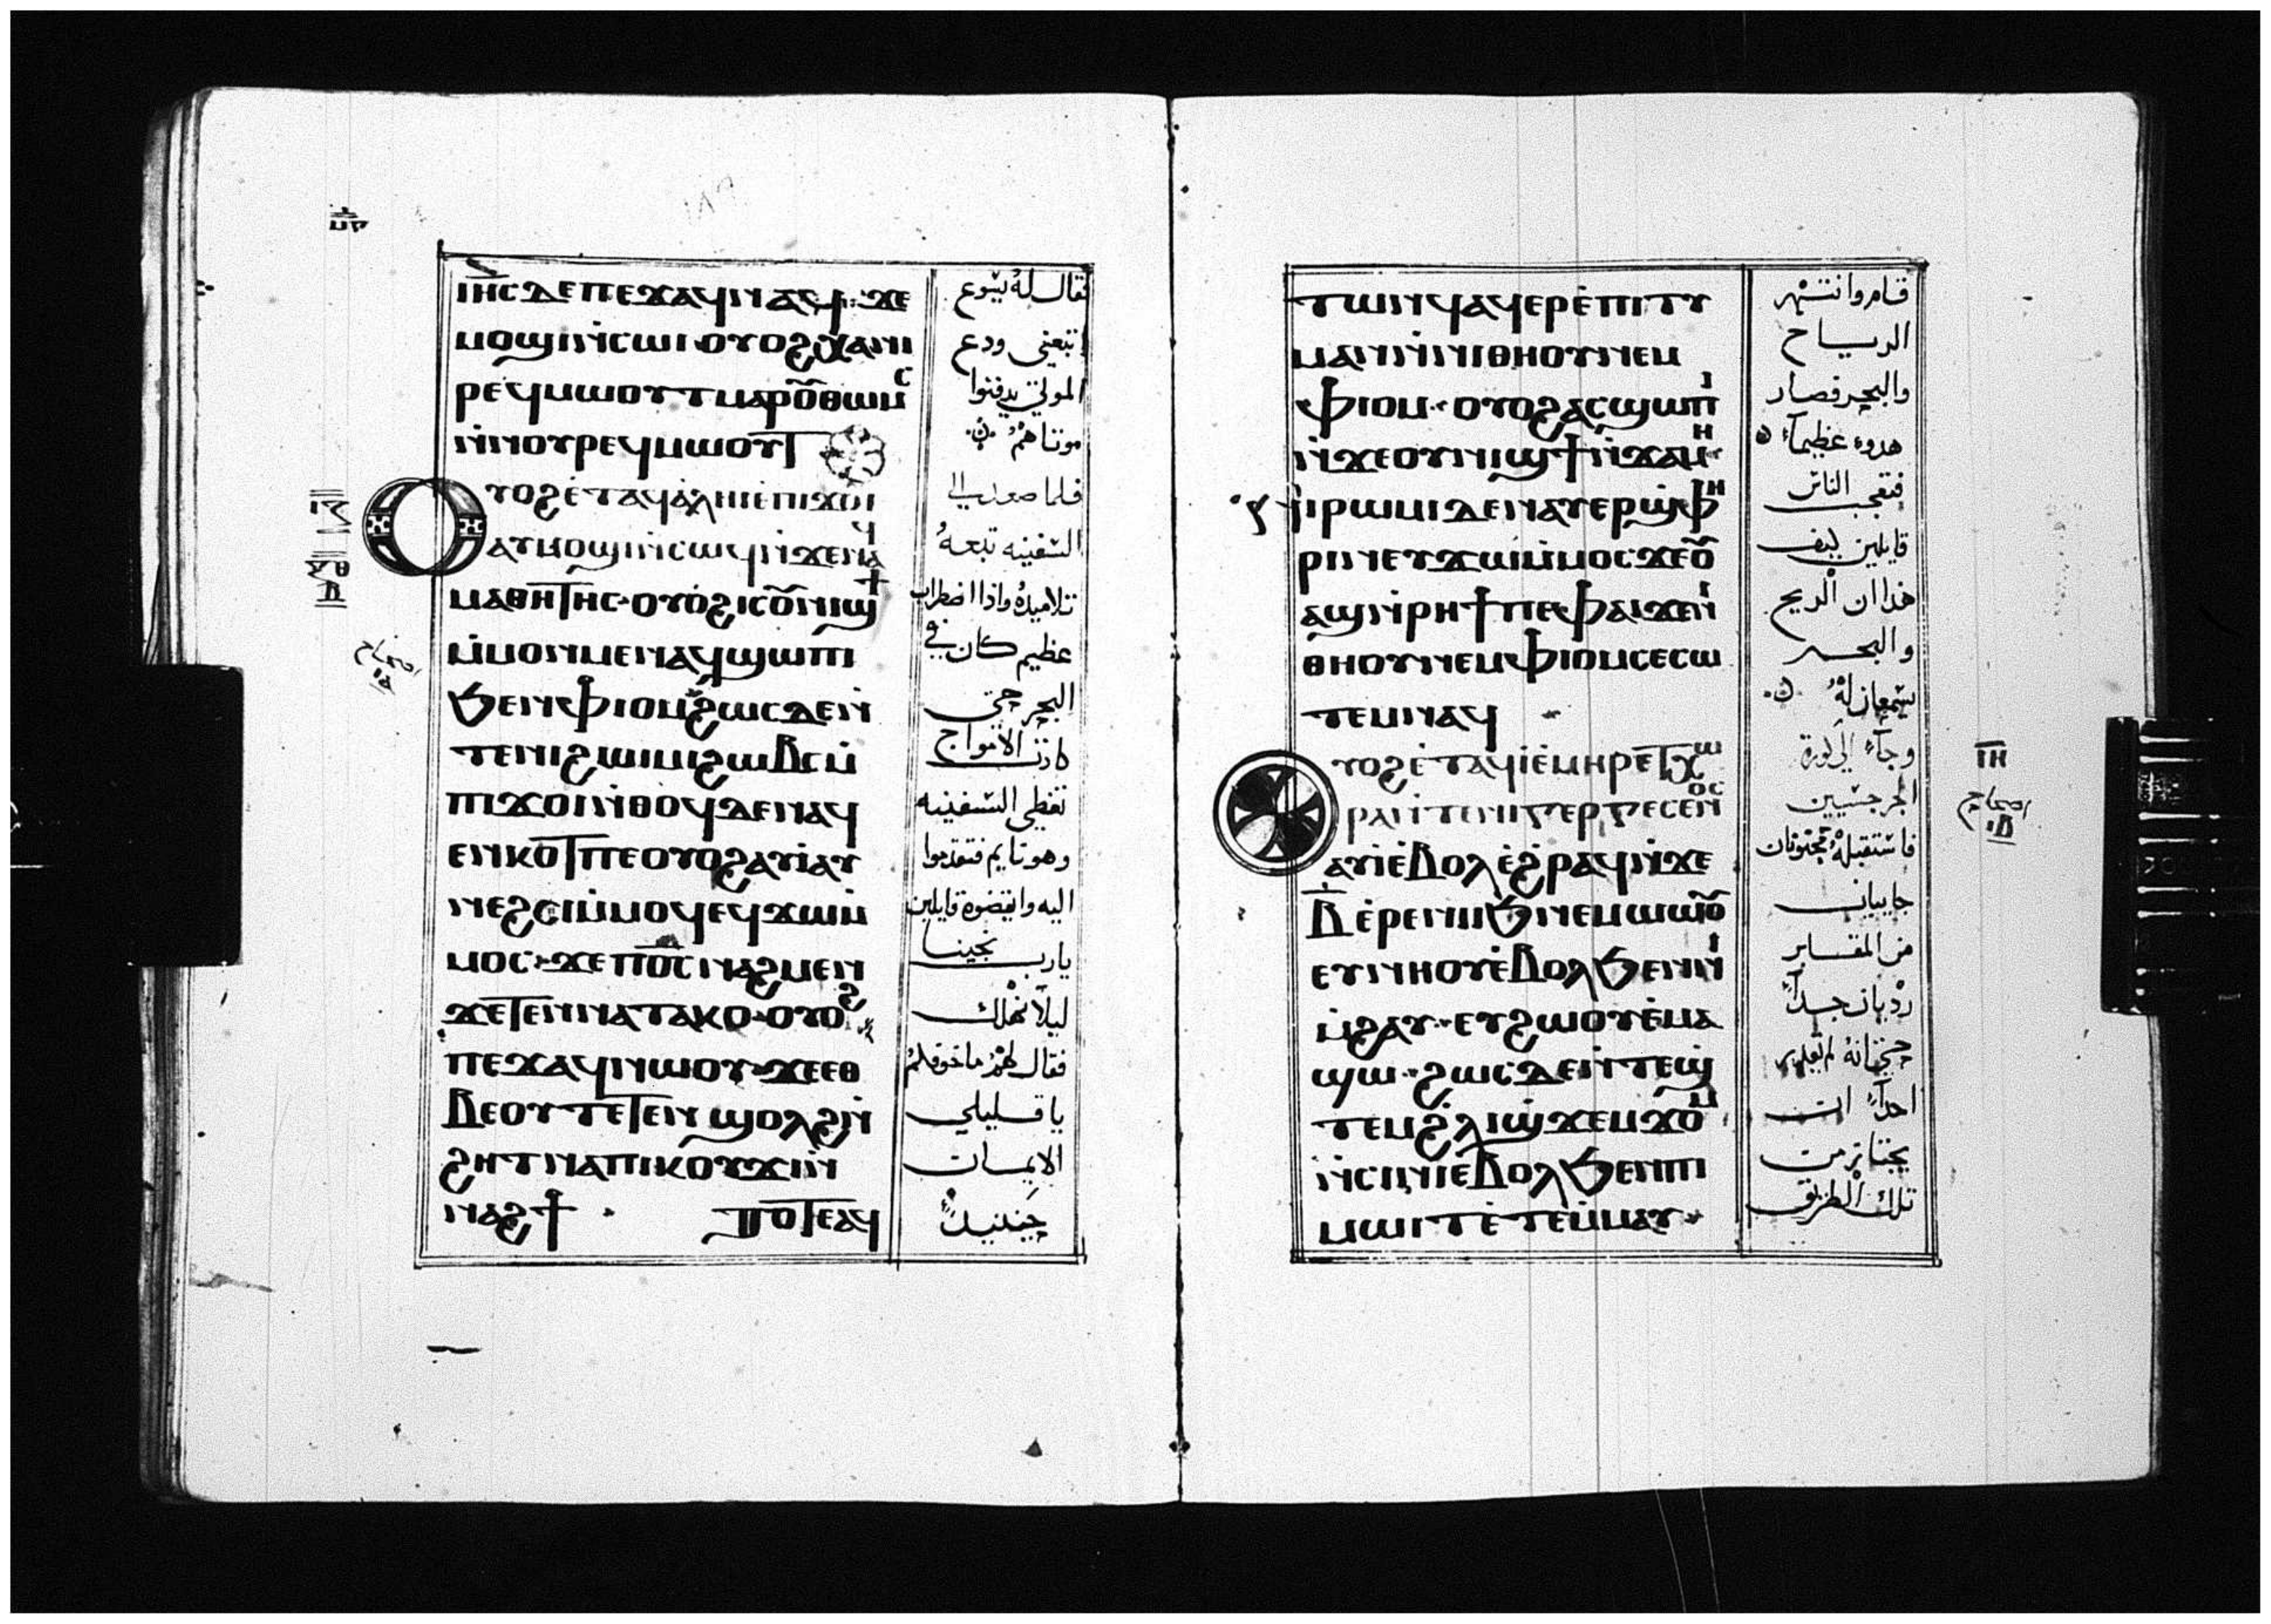 ⲓⲏ̅ⲥ ⲇⲉ ⲡⲉϫⲁϥ ⲛⲁϥ ϫⲉ
ⲙⲟϣⲓ ⲛ̀ⲥⲱⲓ ⲟⲩⲟϩ ⲭⲁ ⲛⲓ
ⲣⲉϥⲙⲱⲟⲩⲧ ⲙⲁⲣⲟⲩⲑⲱⲙⲥ
ⲛ̀ⲛⲟⲩⲣⲉϥⲙⲱⲟⲩⲧ
Ⲟⲩⲟϩ ⲉ̀ⲧⲁϥⲁ̀ⲗⲏⲓ ⲉ̀ⲡⲓϫⲟⲓ
ⲁⲩⲙⲟϣⲓ ⲛ̀ⲥⲱϥ ⲛ̀ϫⲉ ⲛⲉϥ
ⲙⲁⲑⲏⲧⲏⲥ ⲟⲩⲟϩ ⲓⲥ ⲟⲩⲛⲓϣϯ
ⲙ̀ⲙⲟⲛⲙⲉⲛ ⲁϥϣⲱⲡⲓ
ϧⲉⲛ ⲫⲓⲟⲙ ϩⲱⲥⲇⲉ ⲛ̀
ⲧⲉ ⲛⲓϩⲱⲓⲙⲓ ϩⲱⲃⲥ ⲙ̀
ⲡⲓϫⲟⲓ ⲛ̀ⲑⲟϥ ⲇⲉ ⲛⲁϥ
ⲉⲛⲕⲟⲧ ⲡⲉ ⲟⲩⲟϩ ⲁⲩⲓ̀ ⲁⲩ
ⲛⲉϩⲥⲓ ⲙ̀ⲙⲟϥ ⲉϥϫⲱ ⲙ̀
ⲙⲟⲥ ϫⲉ ⲡⲟ̅ⲥ ⲛⲁϩⲙⲉⲛ
ϫⲉ ⲧⲉⲛⲛⲁⲧⲁⲕⲟ ⲟⲩⲟϩ
ⲡⲉϫⲁϥ ⲛⲱⲟⲩ ϫⲉ ⲉⲑ
ⲃⲉⲟⲩ ⲧⲉⲧⲉⲛϣⲟⲗϩ ⲛ̀
ϩⲏⲧ ⲛⲁ ⲡⲓⲕⲟⲩϫⲓ ⲛ̀
ⲛⲁϩϯ ⲧⲟⲧⲉ ⲁϥ
فقال له يسوع
اتبعني ودع
الموتي يدفنوا
موتاهم
فلما صعد الي
السفينه تبعه
تلاميذه واذا اضطراب
عظيم كان في
البحر حتي
كادت الامواج
تغطي السفينه
وهو نايم فتقدموا
اليه وايقضوه قايلين
يارب نجينا
ليلا نهلك
فقال لهم ما خوفكم
يا قليلي
الايمان
حينيذ
ⲧⲱⲛϥ ⲁϥⲉⲣⲉ̀ⲡⲓⲧⲩ
ⲙⲁⲛ ⲛ̀ⲛⲓⲑⲏⲟⲩ ⲛⲉⲙ
ⲫⲓⲟⲙ ⲟⲩⲟϩ ⲁⲥϣⲱⲡⲓ
ⲛ̀ϫⲉ ⲟⲩⲛⲓϣϯ ⲛ̀ϫⲁⲙⲏ
ⲛⲓⲣⲱⲙⲓ ⲇⲉ ⲛⲁⲩⲉⲣϣ̀ⲫⲏ
ⲣⲓ ⲛⲉⲩϫⲱ ⲙ̀ⲙⲟⲥ ϫⲉ ⲟⲩ
ⲁϣ ⲛ̀ⲣⲏϯ ⲡⲉ ⲫⲁⲓ ϫⲉ ⲛⲓ
ⲑⲏⲟⲩ ⲛⲉⲙ ⲫⲓⲟⲙ ⲥⲉⲥⲱ
ⲧⲉⲙ ⲛⲁϥ
Ⲟⲩⲟϩ ⲉ̀ⲧⲁϥⲓ̀ ⲉ̀ⲙⲏⲣ ⲉ̀ⲧⲭⲱ
ⲣⲁ ⲛ̀ⲧⲉ ⲛⲓⲅⲉⲣⲅⲉⲥⲉⲛⲟⲥ
ⲁⲩⲓ̀ ⲉ̀ⲃⲟⲗ ⲉ̀ϩⲣⲁϥ ⲛ̀ϫⲉ
ⲃ̅ ⲉ̀ⲣⲉ ⲛⲓⲓϧ ⲛⲉⲙⲱⲟⲩ
ⲉⲩⲛⲏⲟⲩ ⲉ̀ⲃⲟⲗ ϧⲉⲛ ⲛⲓ
ⲙ̀ϩⲁⲩ ⲉⲩϩⲱⲟⲩ ⲉ̀ⲙⲁ
ϣⲱ ϩⲱⲥⲇⲉ ⲛ̀ⲧⲉϣ̀
ⲧⲉⲙ ϩ̀ⲗⲓ ϣ̀ϫⲉⲙϫⲟⲙ
ⲛ̀ⲥⲓⲛⲓ ⲉ̀ⲃⲟⲗ ϧⲉⲛ ⲡⲓ
ⲙⲱⲓⲧ ⲉ̀ⲧⲉⲙ̀ⲙⲁⲩ
قام وانتهر
الرياح
والبحر فصار
هدوء عظيماً
فتعجب الناس
قايلين كيف
هذا ان الريح
والبحر
يسمعان له
وجآء الي كورة
الجرجسيين
فاستقبله مجنونان
جاييان
من المقابر
رديان جداً
حتي انه لم يقدر
احداً ان
يجتاز من
تلك الطريق
ⲓ̅ⲏ̅
اصحاح